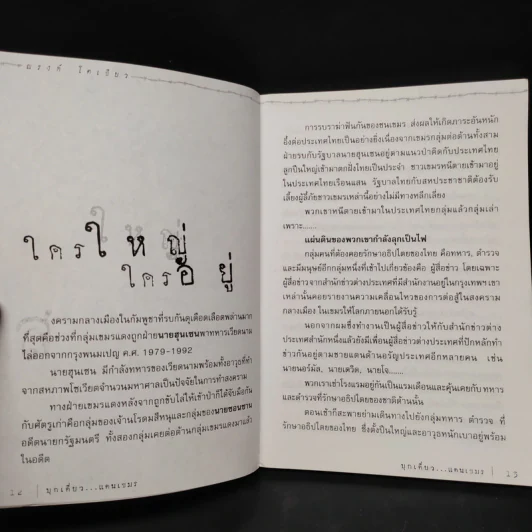 ณรงค์ โตเขียว
ใครใหญ่
ใครอยู่
สงครามกลางเมืองในกัมพูชาที่รบกันดุเดือดเลือดพล่านมาก
ที่สุดคือช่วงที่กลุ่มเขมรแดงถูกฝ่ายนายฮุนเซนพาทหารเวียดนาม
ไล่ออกจากกรุงพนมเปญ ค.ศ. 1979-1992
นายฮุนเซน มีกำลังทหารของเวียดนามพร้อมทั้งอาวุธที่ทำ
จากสหภาพโซเวียตจำนวนมหาศาลเป็นปัจจัยในการทำสงคราม
ทางฝ่ายเขมรแดงหลังจากถูกขับไล่ให้เข้าป่าก็ได้จับมือกัน
กับศัตรูเก่าคือกลุ่มของเจ้านโรดมสีหนุและกลุ่มของนายซอนซาน
อดีตนายกรัฐมนตรี ทั้งสองกลุ่มเคยต่อต้านกลุ่มเขมรแดงมาแล้ว
ในอดีต
บุกเดี่ยว...แดนเขมร
การรบราฆ่าฟันกันของชนเขมร ส่งผลให้เกิดภาระอันหนัก
อึ้งต่อประเทศไทยเป็นอย่างยิ่งเนื่องจากเขมรกลุ่มต่อต้านทั้งสาม
ฝ่ายรบกับรัฐบาลนายฮุนเซนอยู่ตามแนวป่าติดกับประเทศไทย
ลูกปืนใหญ่เข้ามาตกฝั่งไทยเป็นประจำ ชาวเขมรหนีตายเข้ามาอยู่
ในประเทศไทยเรือนแสน รัฐบาลไทยกับสหประชาชาติต้องรับ
เลี้ยงผู้ลี้ภัยชาวเขมรเหล่านี้อย่างไม่มีทางหลีกเลี่ยง
พวกเขาหนีตายเข้ามาในประเทศไทยกลุ่มแล้วกลุ่มเล่า
เพราะ.......
แผ่นดินของพวกเขากำลังลุกเป็นไฟ
กลุ่มคนที่ต้องคอยรักษาอธิปไตยของไทย คือทหาร, ตำรวจ
และมีมนุษย์อีกกลุ่มหนึ่งที่เข้าไปเกี่ยวข้องคือ ผู้สื่อข่าว โดยเฉพาะ
ผู้สื่อข่าวจากสำนักข่าวต่างประเทศที่มีสำนักงานอยู่ในกรุงเทพฯ เขา
เหล่านั้นคอยรายงานความเคลื่อนไหวของการต่อสู้ในสงคราม
กลางเมือง ในเขมรให้โลกภายนอกได้รับรู้
นอกจากผมซึ่งทำงานเป็นผู้สื่อข่าวให้กับสำนักข่าวต่าง
ประเทศสำนักหนึ่งแล้วยังมีเพื่อนผู้สื่อข่าวต่างประเทศที่ปักหลักทำ
ข่าวกันอยู่ตามชายแดนด้านอรัญประเทศอีกหลายคน เช่น
นายนอร์มัล, นายเดวิด, นายโจ.......
พวกเราเช่าโรงแรมอยู่กันเป็นแรมเดือนและคุ้นเคยกับ ทหาร
และตำรวจที่รักษาอธิปไตยของชาติด้านนั้น
ตอนเช้าก็สะพายย่ามเดินทางไปยังกลุ่มทหาร ตำรวจ ที่
รักษาอธิปไตยของไทย ซึ่งตั้งปืนใหญ่และอาวุธหนักเบาอยู่พร้อม
บุกเดี่ยว...แดนเขมร